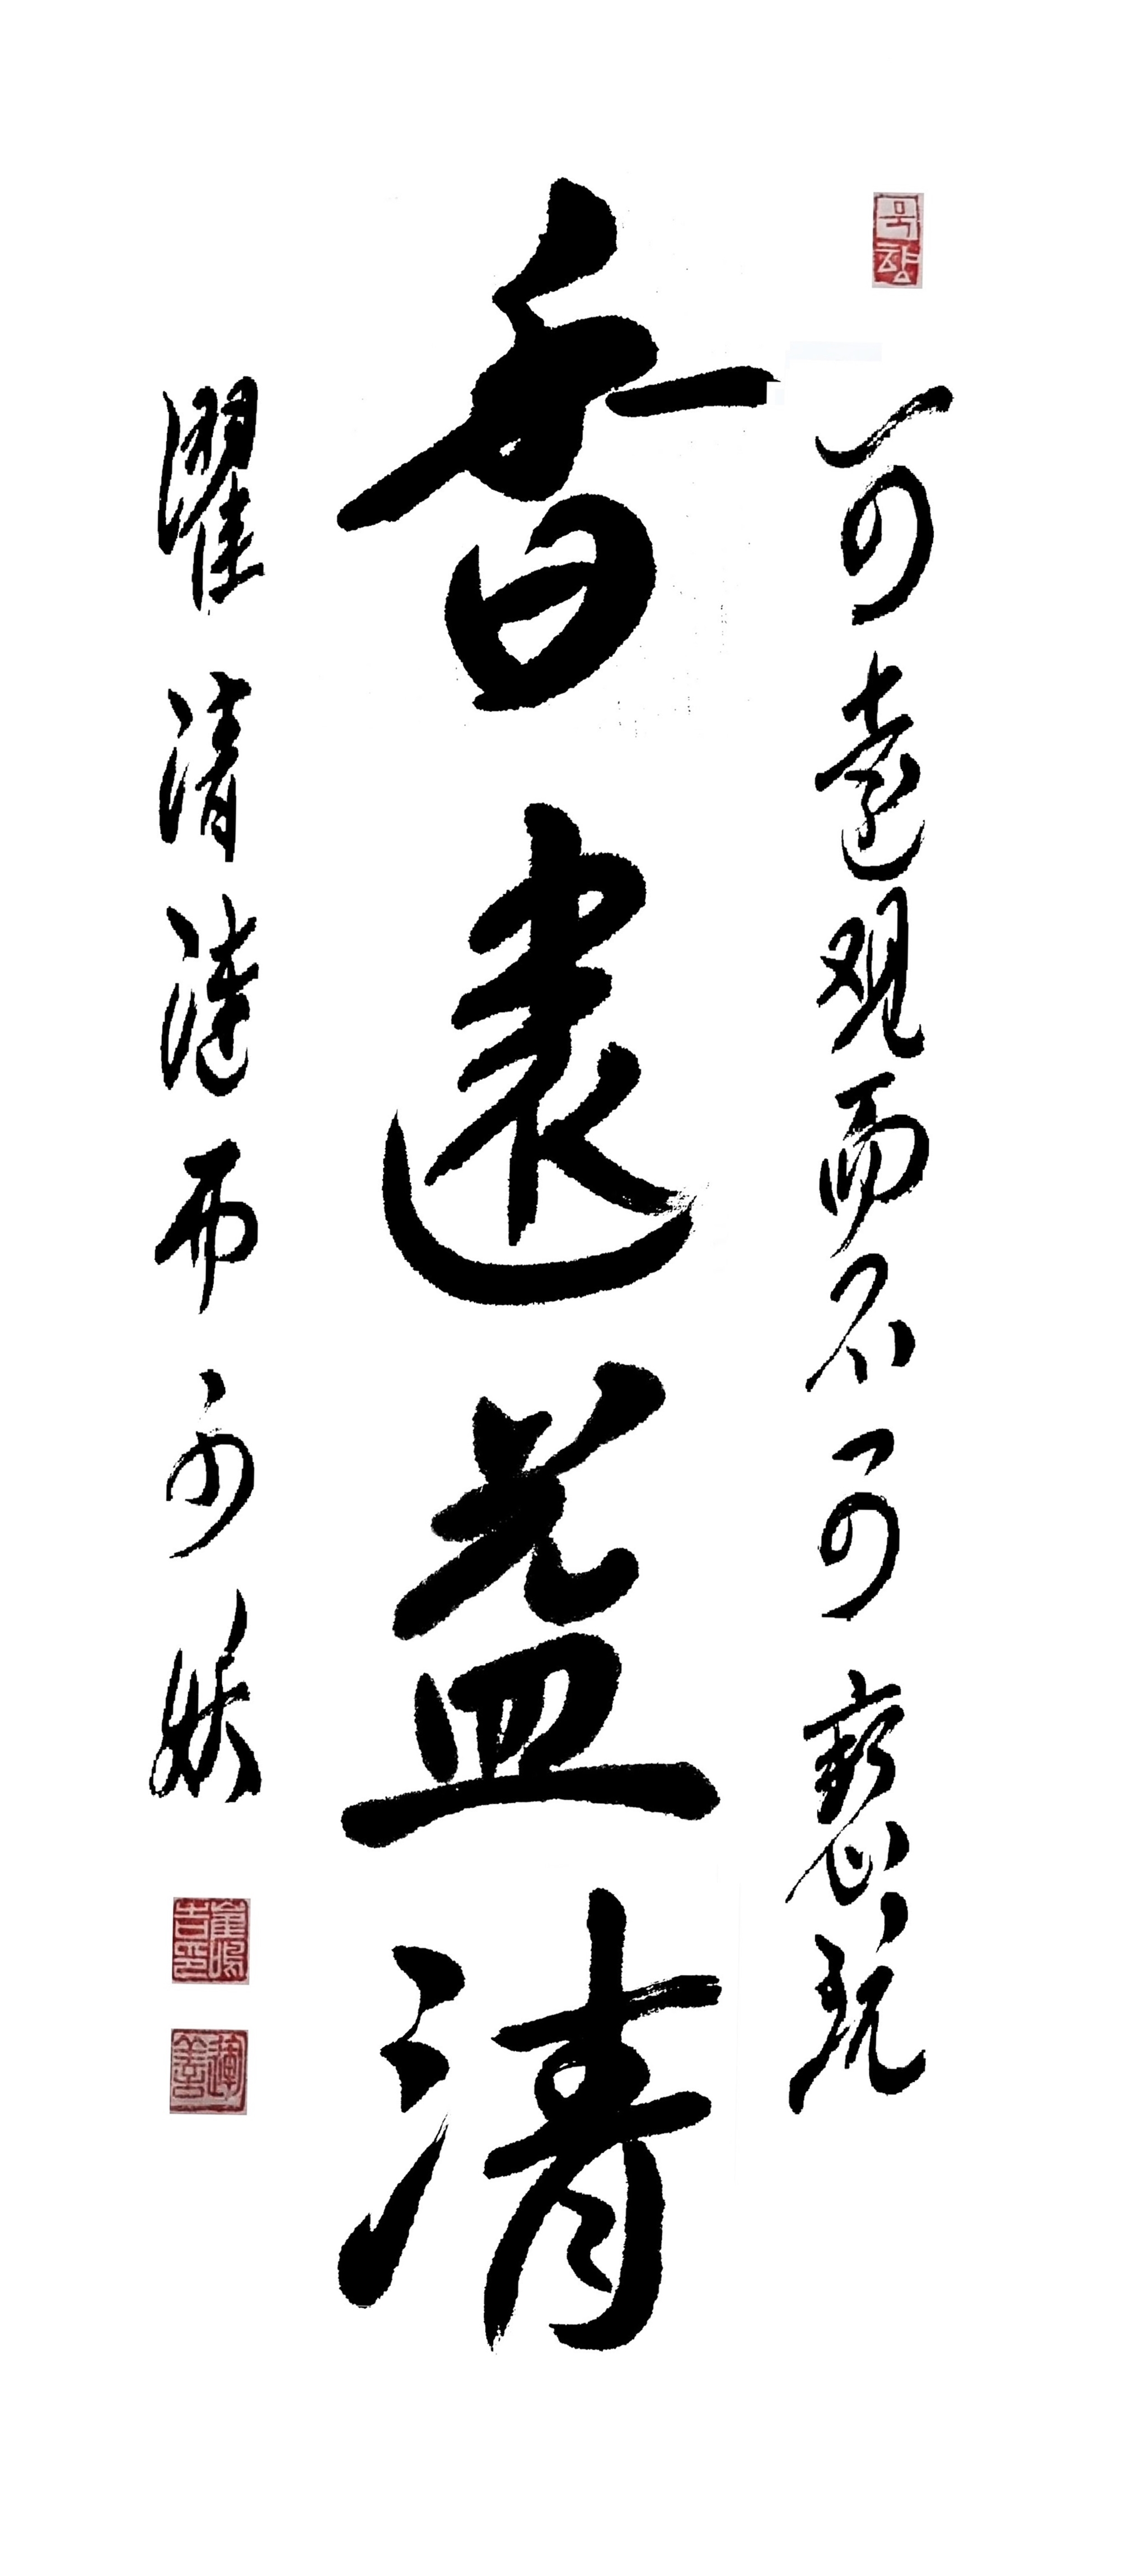 묵향
可遠观而不可褻玩
香遠益清
濯清漣而不妖